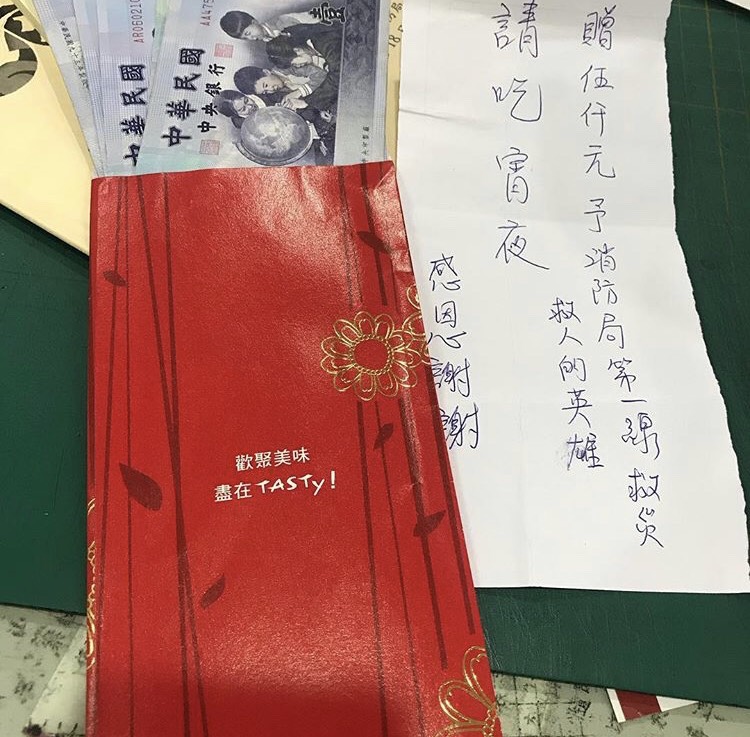 中華民國
AR06021
中華民國
中央銀行
AA475
壹
歡聚美味
盡在TASTy!
贈伍仟元予消防局第一線救災
救人的英雄
請吃宵夜
感恩謝謝